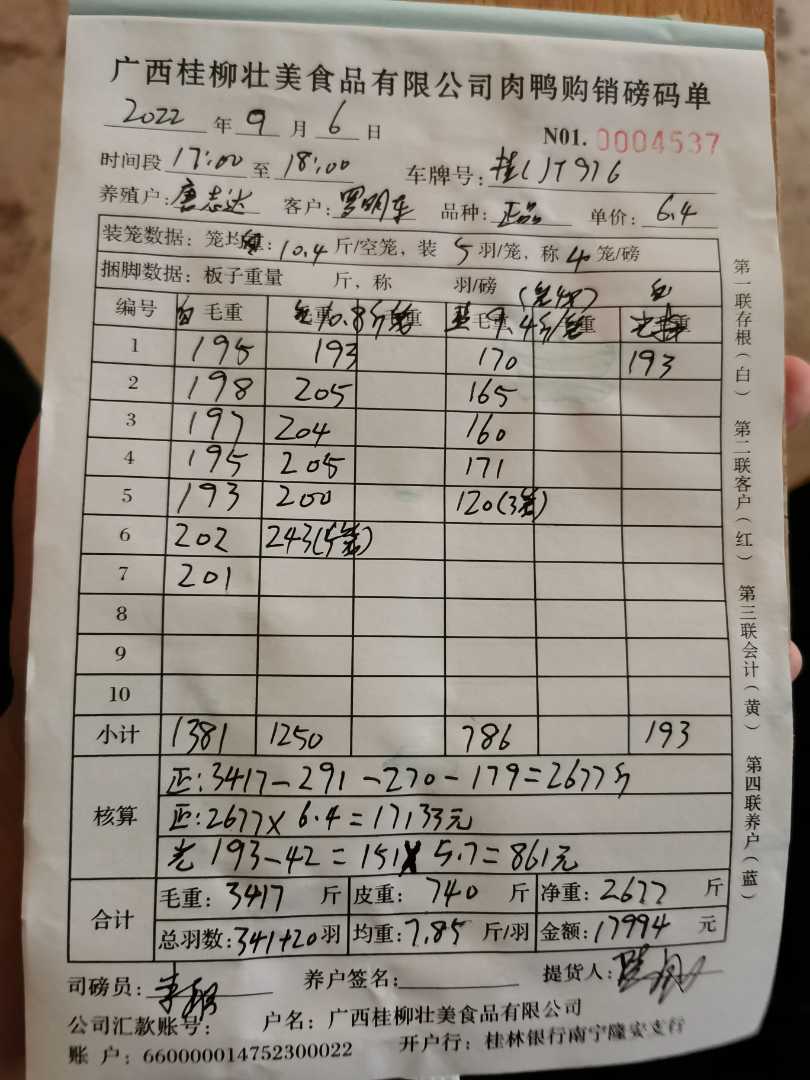 广西桂柳壮美食品有限公司肉鸭购销磅码单
2022 年 9 月 6 日 N01. 0004537
时间段 17:00 至 18:00 车牌号: 桂 JT976
养殖户: 唐志达 客户: 罗明车 品种: 正品 单价: 6.4
装笼数据: 笼均重: 10.4 斤/空笼, 装 5 羽/笼, 称 4 笼/磅
捆脚数据: 板子重量 斤, 称 羽/磅
编号 毛重 10.8斤/笼 毛重 9.4斤/笼
1 195 193 170 193
2 198 205 165
3 197 204 160
4 195 205 171
5 193 200 120(3笼)
6 202 243(5笼)
7 201
8
9
10
小计 1381 1250 786 193
核算 正: 3417-291-270-179=2677斤
正: 2677×6.4=17133元
光 193-42=151×5.7=861元
合计 毛重: 3417 斤 皮重: 740 斤 净重: 2677 斤
总羽数: 341+20 羽 均重: 7.85 斤/羽 金额: 17994 元
司磅员: 养户签名: 提货人:
公司汇款账号: 户名: 广西桂柳壮美食品有限公司
账 户: 660000014752300022 开户行: 桂林银行南宁隆安支行
第一联存根(白) 第二联客户(红) 第三联会计(黄) 第四联养户(蓝)